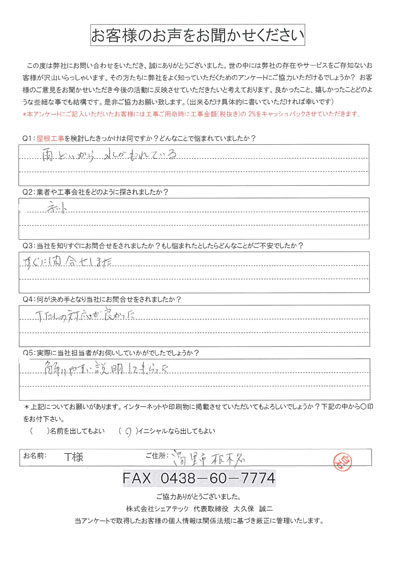 お客様のお声をお聞かせください
この度は弊社にお問い合わせをいただき、誠にありがとうございました。世の中には弊社の存在やサービスをご存知ないお
客様が沢山いらっしゃいます。その方たちに弊社をよく知っていただくためのアンケートにご協力いただけるでしょうか？ お客
様のご意見をお聞かせいただき今後の活動に反映させていただきたいと考えております。良かったこと、嬉しかったことどのよ
うな些細な事でも結構です。是非ご協力お願い致します。（出来るだけ具体的に書いていただければ幸いです）
*本アンケートにご記入いただいたお客様には工事ご用命時に工事金額(税抜き)の 2%をキャッシュバックさせていただきます。
Q1：屋根工事を検討したきっかけは何ですか？どんなことで悩まれていましたか？
雨どいから 水がもれている
Q2：業者や工事会社をどのように探されましたか？
ネット
Q3：当社を知りすぐにお問合せをされましたか？もし悩まれたとしたらどんなことがご不安でしたか？
すぐに問合せしました
Q4：何が決め手となり当社にお問合せをされましたか？
の対応が良かった
Q5：実際に当社担当者がお伺いしていかがでしたでしょうか？
解りやすい説明してもらった
＊上記についてお願いがあります。インターネットや印刷物に掲載させていただいてもよろしいでしょうか？下記の中から〇印
をお付下さい。
（　）名前を出してもよい　（〇）イニシャルなら出してもよい
お名前： T様 ご住所：
FAX 0438-60-7774
ご協力ありがとうございました。
株式会社シェアテック 代表取締役 大久保 誠二
当アンケートで取得したお客様の個人情報は関係法規に基づき厳正に管理いたします。